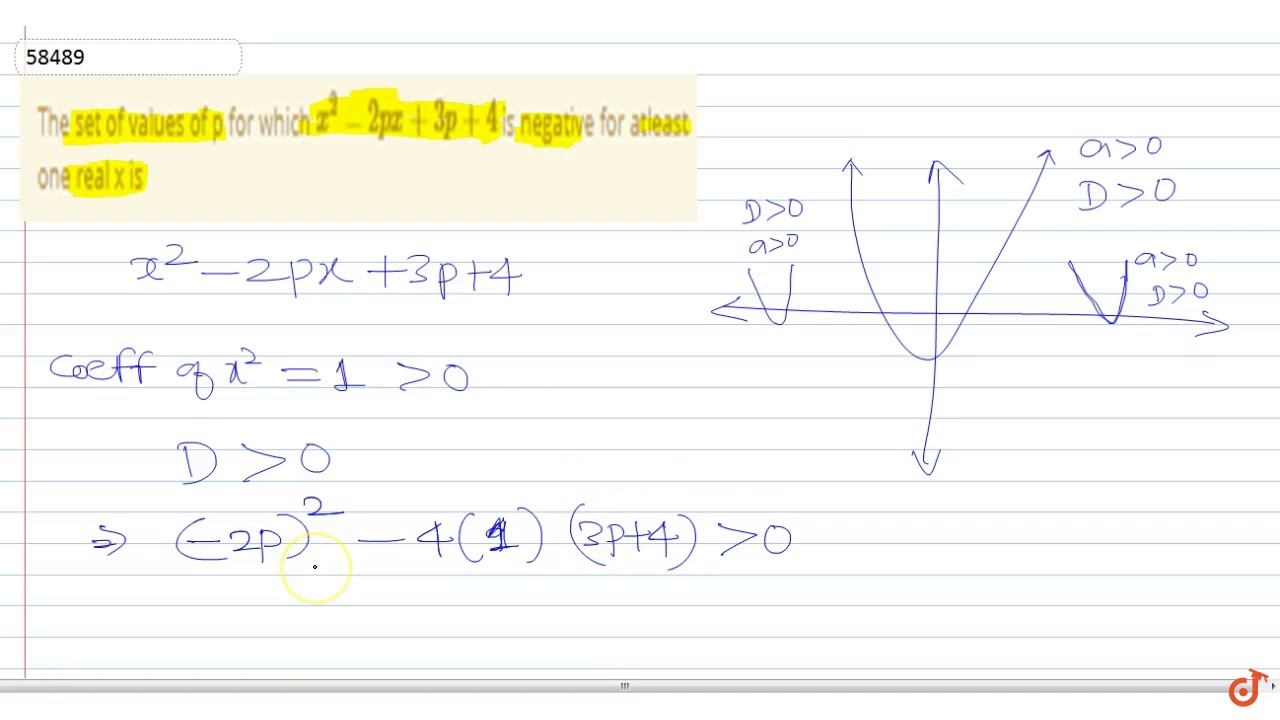 58489
The set of values of p for which x² − 2px + 3p + 4 is negative for atleast
one real x is
x² − 2px + 3p + 4
Coeff of x² = 1 > 0
D > 0
⇒ (−2p)² − 4(1) (3p+4) > 0
D > 0
a > 0
a > 0
D > 0
a > 0
D > 0